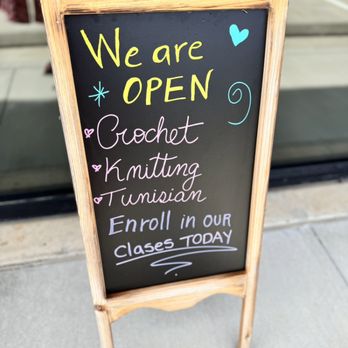 We are
OPEN
Crochet
Knitting
Tunisian
Enroll in OUR
Clases TODAY